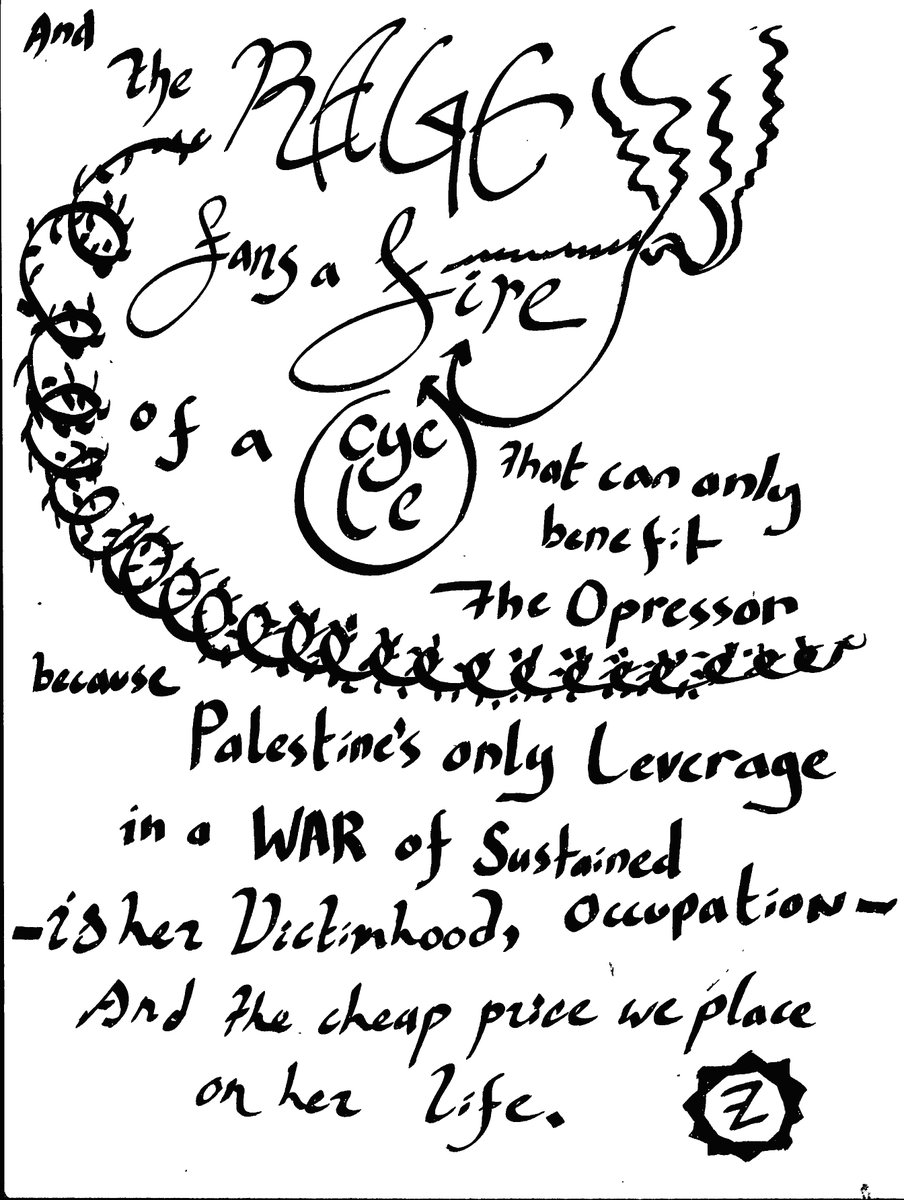 And
the RAGE
fans a fire
of a cycle
that can only
benefit
the Opressor
because
Palestine's only leverage
in a WAR of Sustained
Occupation-
-is her Victimhood,
And the cheap price we place
on her life.
Z